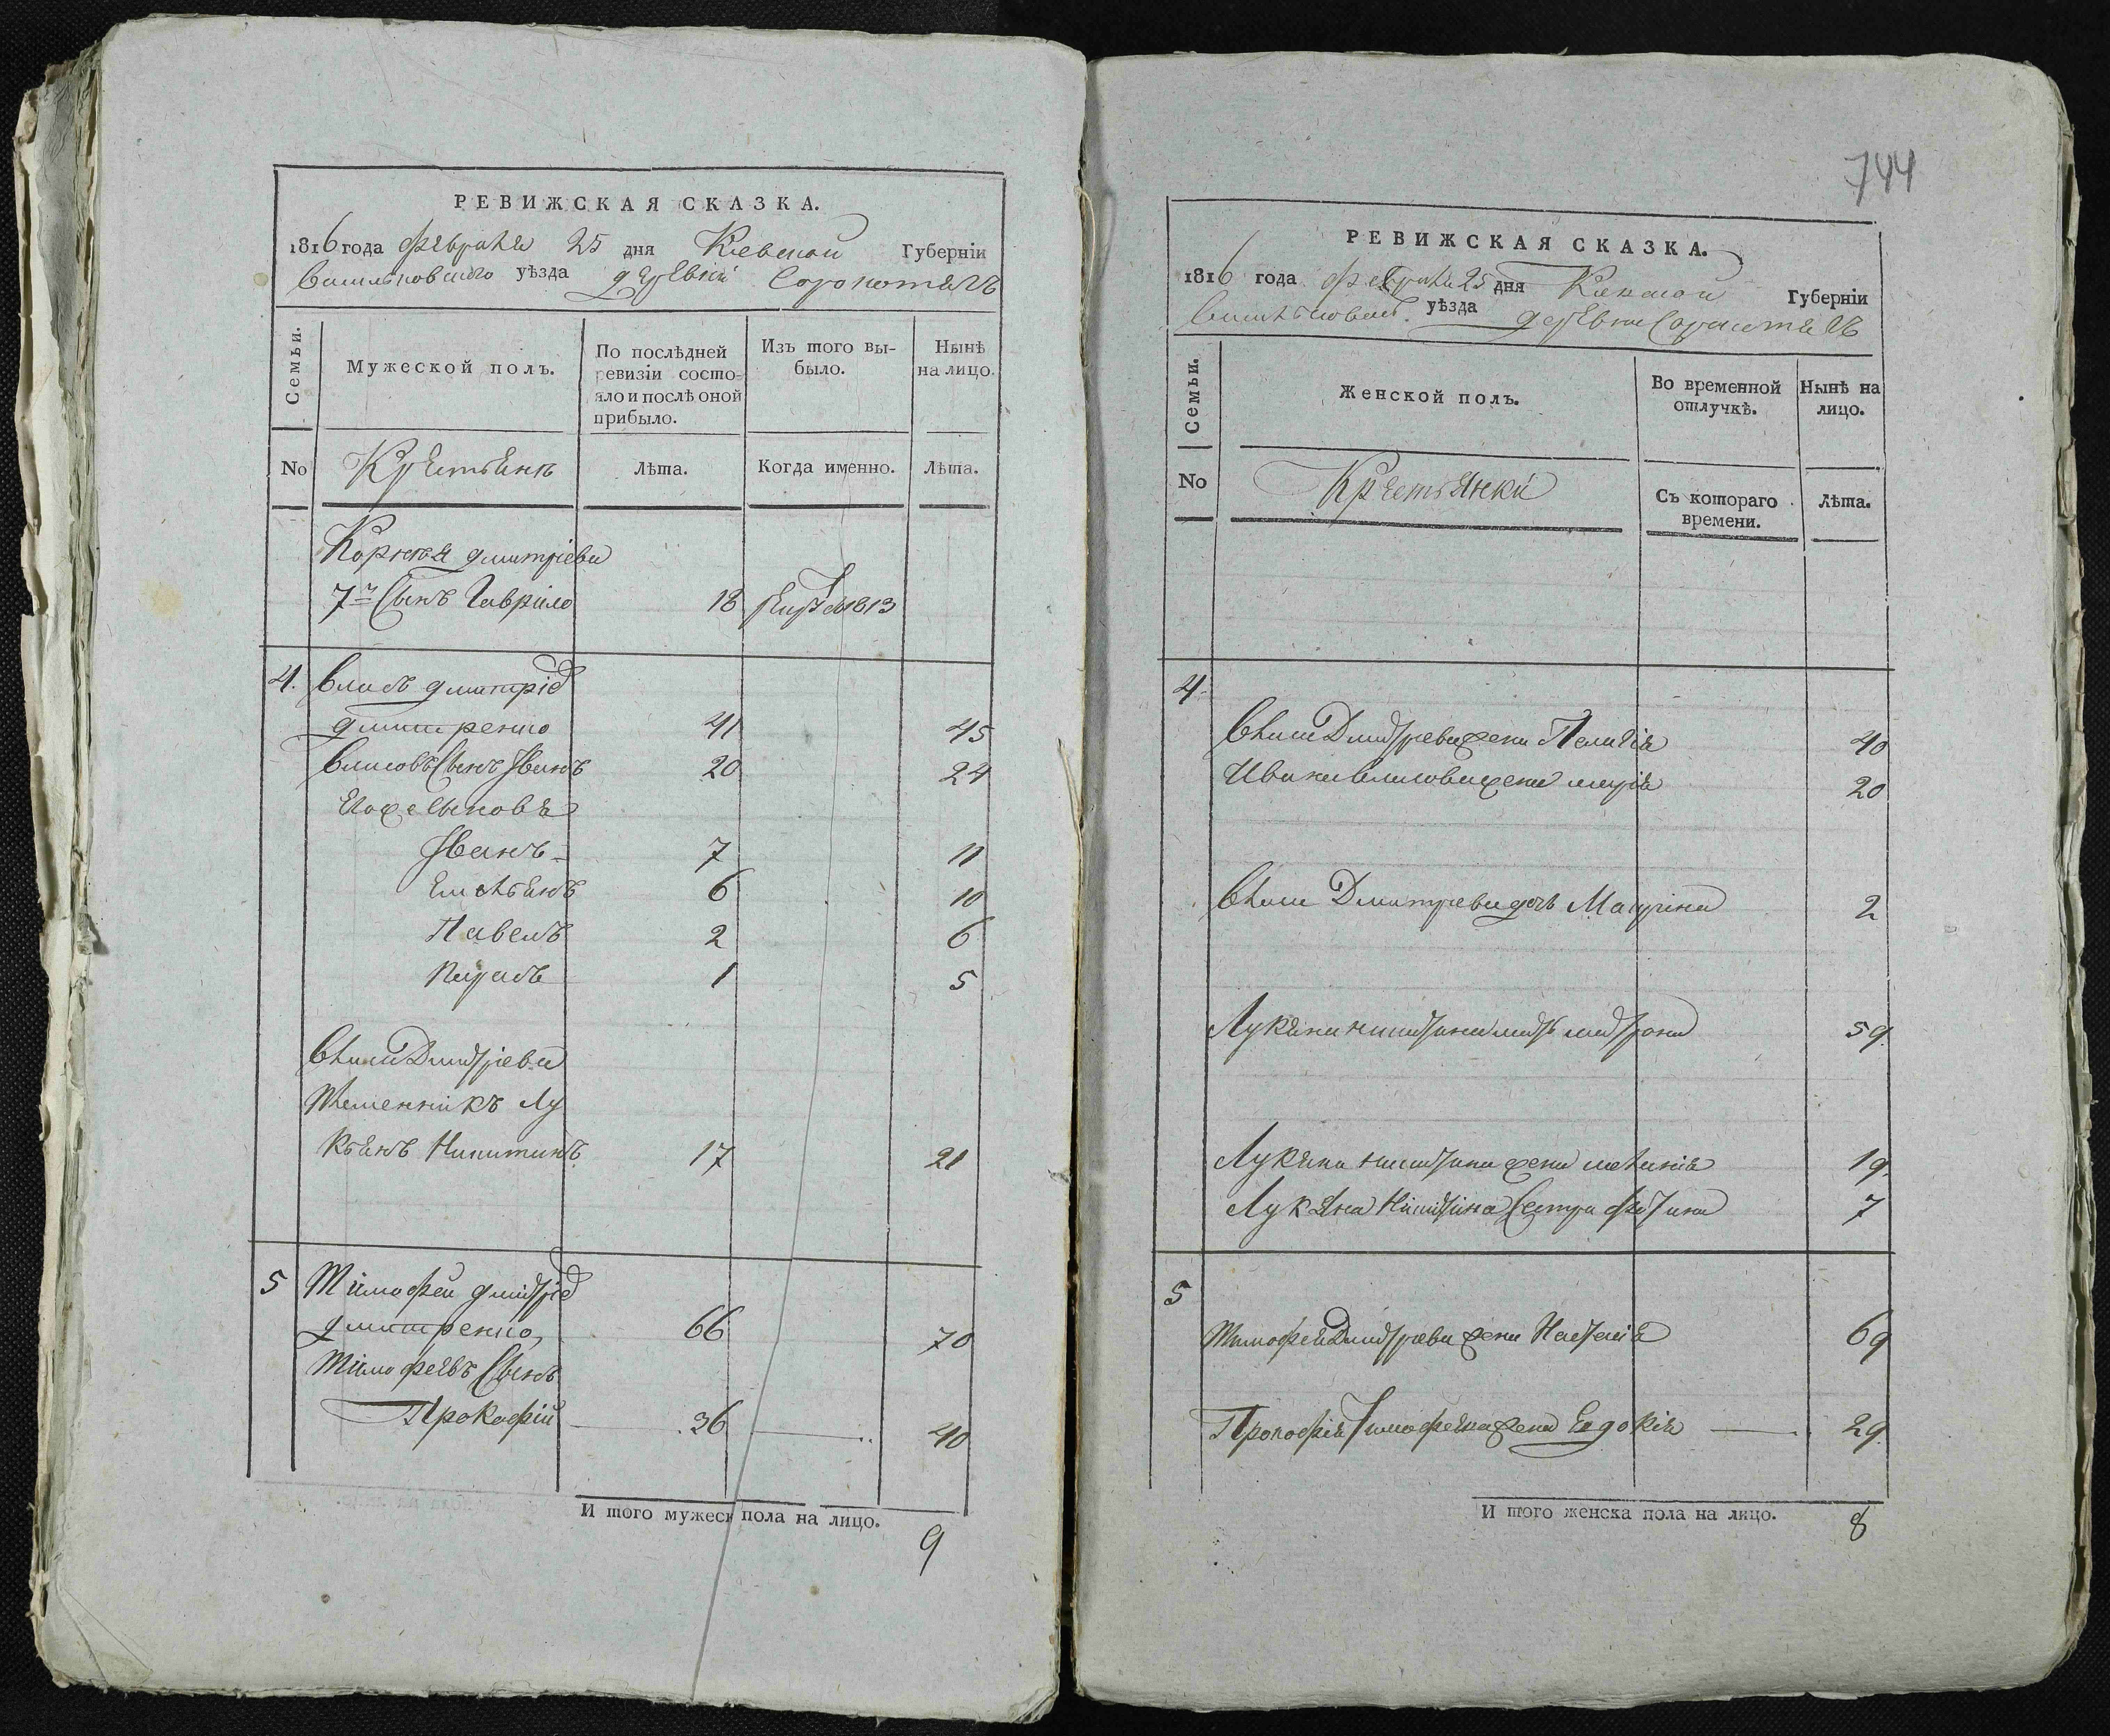 РЕВИЖСКАЯ СКАЗКА.
1816 года февраля 25 дня Киевской Губерніи
Васильковского уѣзда деревни Сорокотягъ
Семьи.
Мужеской полъ.
По послѣдней ревизіи состояло и послѣ оной прибыло.
Изъ того выбыло.
Нынѣ на лицо.
No Крестьянъ Лѣта. Когда именно. Лѣта.
Корнея дмитріева
7й Сынъ Гаврило 18 1813
4. Власъ дмитріев
дмитренко 41 45
Власовъ Сынъ Иванъ 20 24
Его же Сыновя
Иванъ 7 11
Емельянъ 6 10
Павелъ 2 6
Тарасъ 1 5
Власа Дмитріева
Племенникъ Лу
кьянъ Никитинъ 17 21
5 Тимофей дмитріев
дмитренко, 66 70
Тимофеевъ Сынъ
Прокофій 36 40
И того мужеск пола на лицо. 9
744
РЕВИЖСКАЯ СКАЗКА.
1816 года февраля 25 дня Киевской Губерніи
Васильковск. уѣзда деревни Сорокотягъ
Семьи.
Женской полъ.
Во временной отлучкѣ.
Нынѣ на лицо.
No Крестьянки Съ котораго времени. Лѣта.
4.
Власа Дмитріева жена Пелагія 40
Ивана власова жена марія 20
Власа Дмитріева дочь Маурина 2
Лукяна никитина мать матрона 59
Лукяна никитина жена меланія 19
Лукяна Никитина Сестра 7
5
Тимофея Дмитріева жена Настасія 69
Прокофія Тимофеева жена Евдокія 29
И того женска пола на лицо. 8